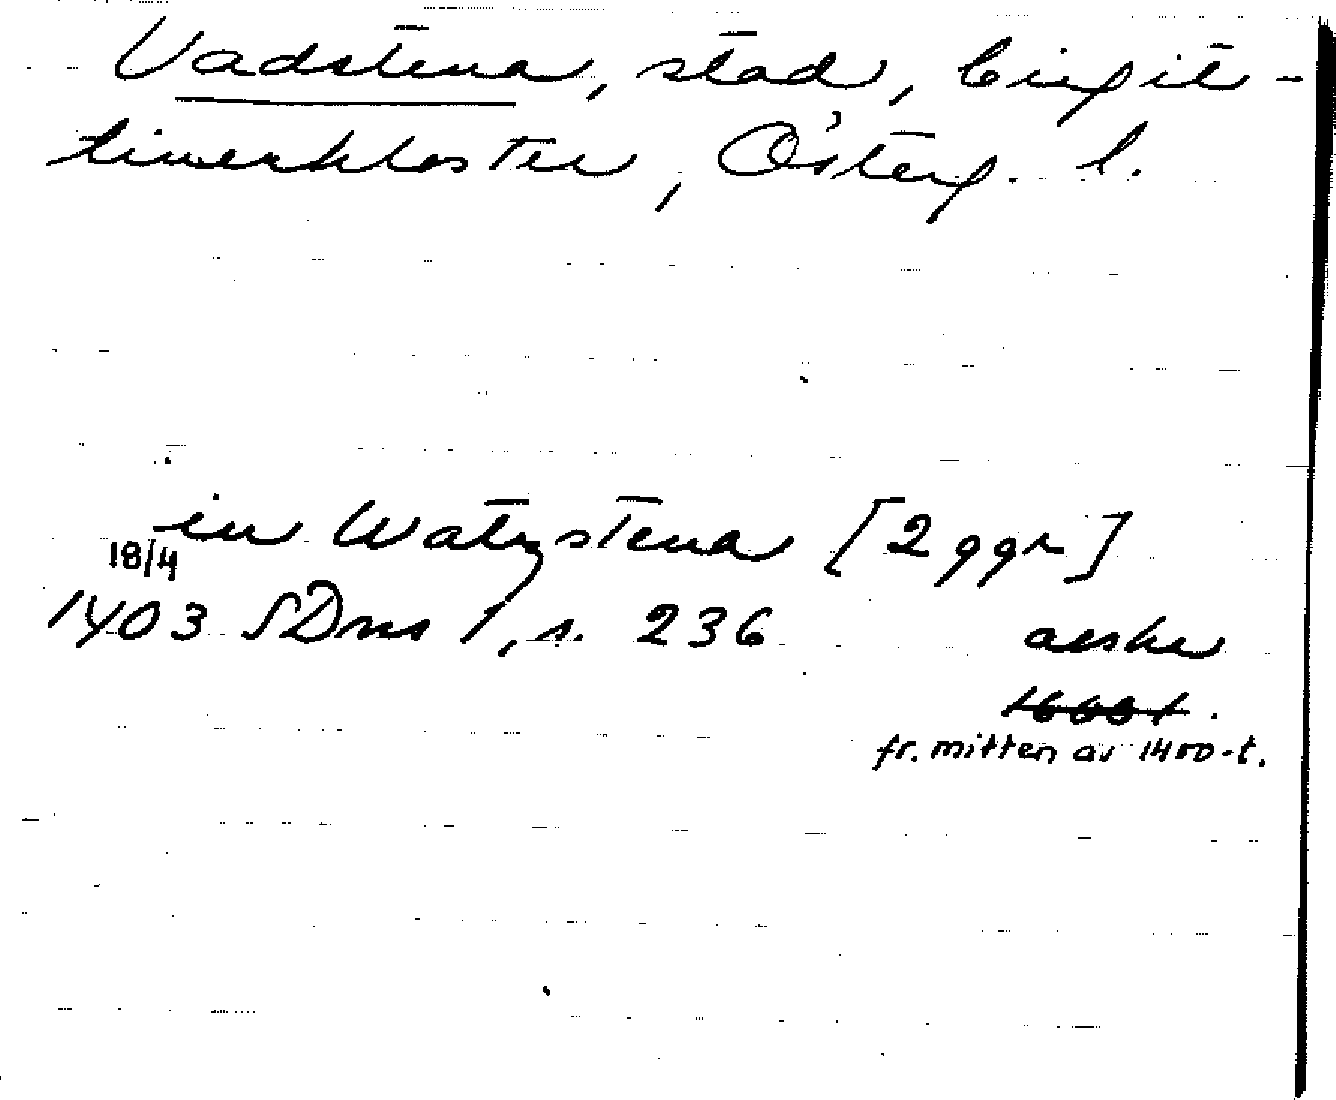 Vadstena, stad, birgit-
tinerkloster, Österg. l.
in Watzstena [2 ggr]
18/4
1403 SDns 1, s. 236 avskr
fr. mitten av 1400-t.